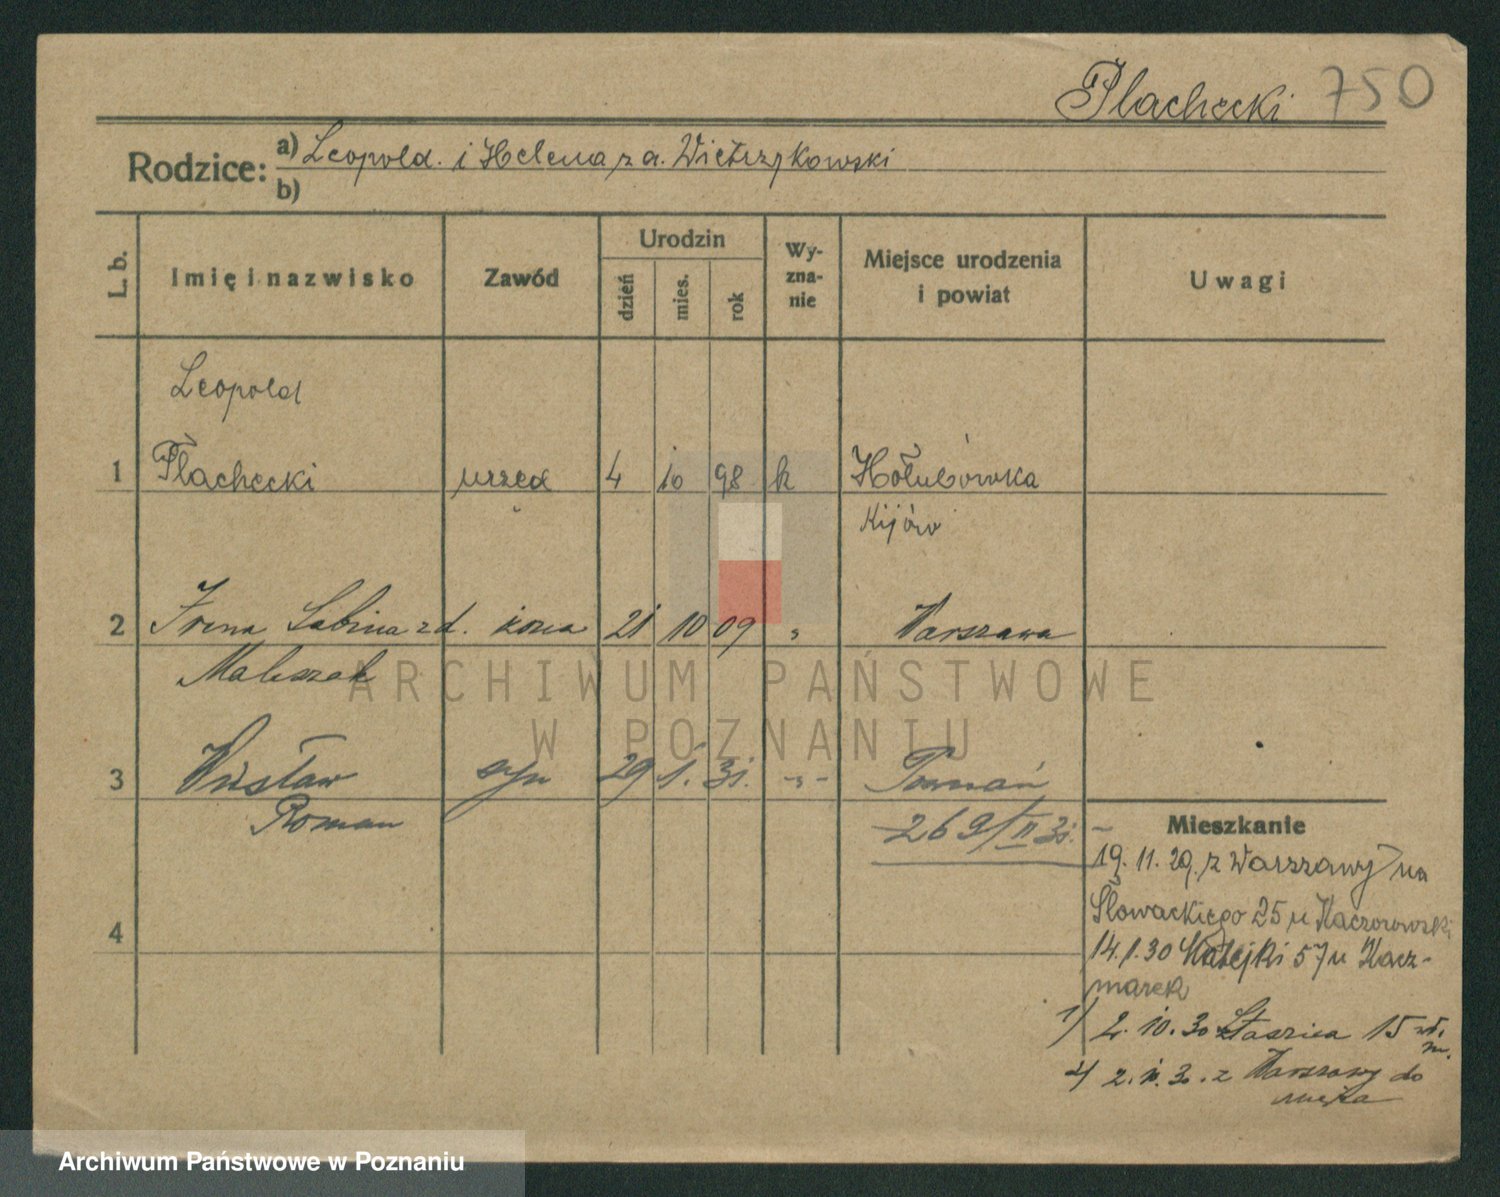 Plachecki 750
Rodzice: a) Leopold. i Helena z a. Wietrzykowski
b)
L. b. Imię i nazwisko Zawód Urodzin dzień mies. rok Wy-zna-nie Miejsce urodzenia i powiat Uwagi
Leopold
1 Plachecki urzęd 4 10 98 k Hołubówka
Kijów
2 Irena Sabina z d. żona 21 10 09 " Warszawa
Maliszak
ARCHIWUM PAŃSTWOWE
W POZNANIU
3 Wiesław syn 29 1. 31. -"- Poznań
Roman 269/II 31. -
Mieszkanie
19. 11. 29. z Warszawy na
Słowackiego 25 u Kaczorowski
4
14.1.30 Matejki 57 u Kacz-
marek
1) 2. 10. 30 Staszica 15 wł.
m.
2) 2. 10. 30. z Warszawy do
męża
Archiwum Państwowe w Poznaniu